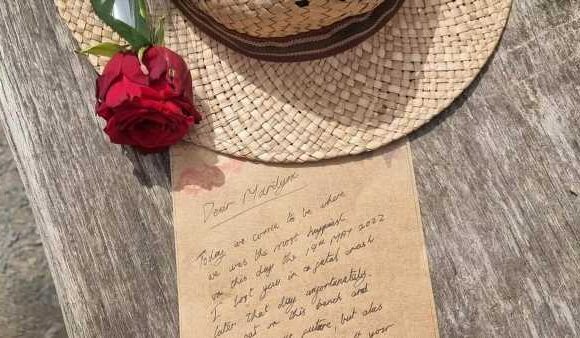 Dear Marilynn
Today we come to be where
we was the most happiest
on this day the 19th MAY 2022
I lost you in a fatal crash
later that day unfortunately
sat on this bench and
future, but alas
your